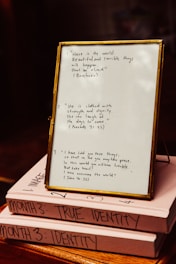 "Here is the world.
Beautiful and terrible things
will happen.
Don't be afraid."
(Buechner)
"She is clothed with
strength and dignity
she can laugh at
the days to come."
(Proverbs 31:25)
"I have told you these things,
so that in me you may have peace.
In this world you will have trouble.
But take heart!
I have overcome the world!"
MONTH 3: TRUE IDENTITY
MONTH 3: IDENTITY